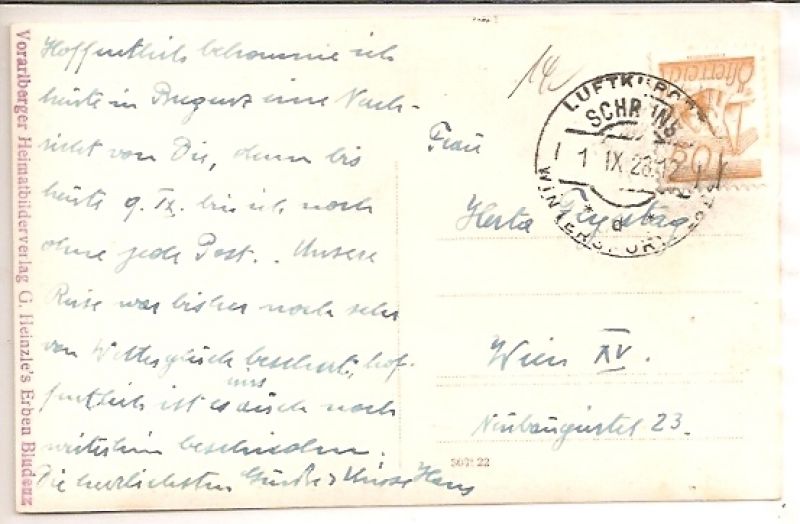 Vorarlberger Heimatbilderverlag G. Heinzle's Erben Bludenz
Hoffentlich bekomme ich
heute in Bregenz eine Nach-
richt von Dir, denn bis
heute 9. IX. bin ich noch
ohne jede Post.. Unsere
Reise war bisher noch sehr
von Wetterglück beschert, hof-
fentlich ist es uns auch noch
weiterhin beschieden.
Die herzlichsten Grüße & Küsse Hans
14
Frau
Herta Freytag
Wien XV.
Neubaugürtel 23.
567: 22
Österreich
LUFTKURORT
SCHRUNS
1 IX 28 12
* d *
WINTERSPORT